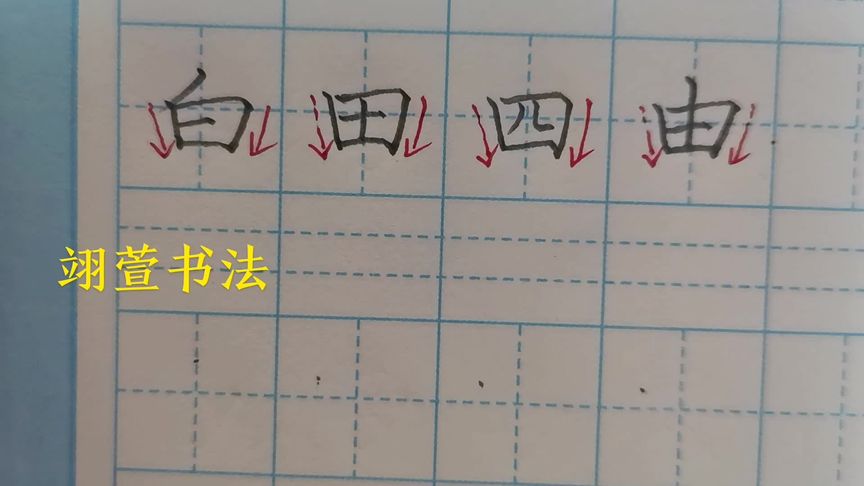 白 田 四 由
翊萱书法